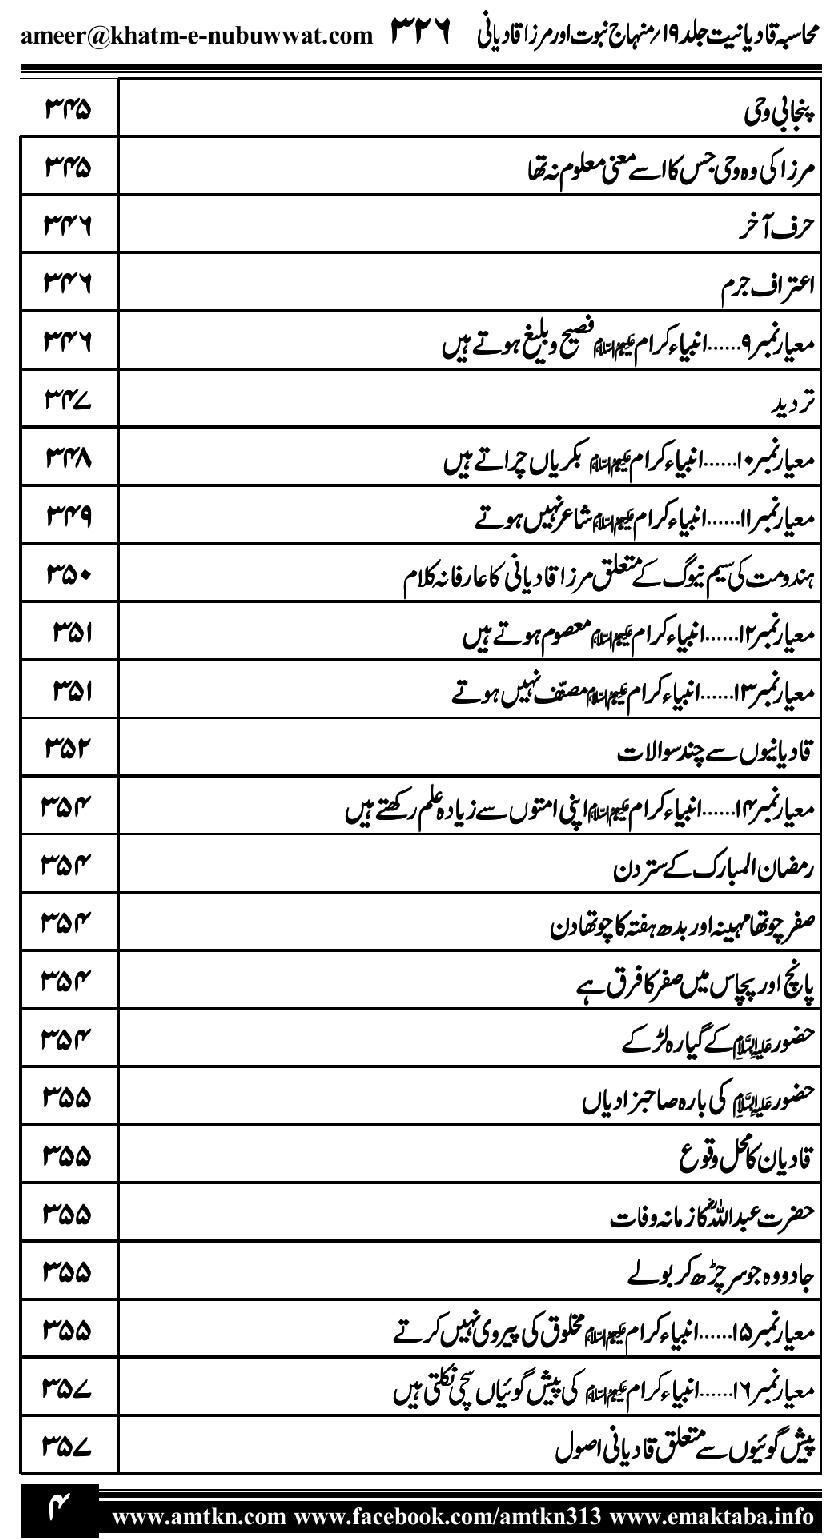 محاسبہ قادیانیت جلد ۱۹؍ منہاج نبوت اور مرزا قادیانی ۳۲۶ ameer@khatm-e-nubuwwat.com
پنجابی وحی ۳۴۵
مرزا کی وہ وحی جس کا اسے معنی معلوم نہ تھا ۳۴۵
حرف آخر ۳۴۶
اعتراف جرم ۳۴۶
معیار نمبر۹......انبیاء کرام علیہم السلام فصیح و بلیغ ہوتے ہیں ۳۴۶
تردید ۳۴۷
معیار نمبر۱۰......انبیاء کرام علیہم السلام بکریاں چراتے ہیں ۳۴۸
معیار نمبر۱۱......انبیاء کرام علیہم السلام شاعر نہیں ہوتے ۳۴۹
ہندومت کی سیم نیوگ کے متعلق مرزا قادیانی کا عارفانہ کلام ۳۵۰
معیار نمبر۱۲......انبیاء کرام علیہم السلام معصوم ہوتے ہیں ۳۵۱
معیار نمبر۱۳......انبیاء کرام علیہم السلام مصنّف نہیں ہوتے ۳۵۱
قادیانیوں سے چند سوالات ۳۵۲
معیار نمبر۱۴......انبیاء کرام علیہم السلام اپنی امتوں سے زیادہ علم رکھتے ہیں ۳۵۴
رمضان المبارک کے ستر دن ۳۵۴
صفر چوتھا مہینہ اور بدھ ہفتہ کا چوتھا دن ۳۵۴
پانچ اور پچاس میں صفر کا فرق ہے ۳۵۴
حضور علیہ السلام کے گیارہ لڑکے ۳۵۴
حضور علیہ السلام کی بارہ صاحبزادیاں ۳۵۵
قادیان کا محل وقوع ۳۵۵
حضرت عبداللہؓ کا زمانہ وفات ۳۵۵
جادو وہ جو سر چڑھ کر بولے ۳۵۵
معیار نمبر۱۵......انبیاء کرام علیہم السلام مخلوق کی پیروی نہیں کرتے ۳۵۵
معیار نمبر۱۶......انبیاء کرام علیہم السلام کی پیش گوئیاں سچی نکلتی ہیں ۳۵۷
پیش گوئیوں سے متعلق قادیانی اصول ۳۵۷
۴ www.amtkn.com www.facebook.com/amtkn313 www.emaktaba.info